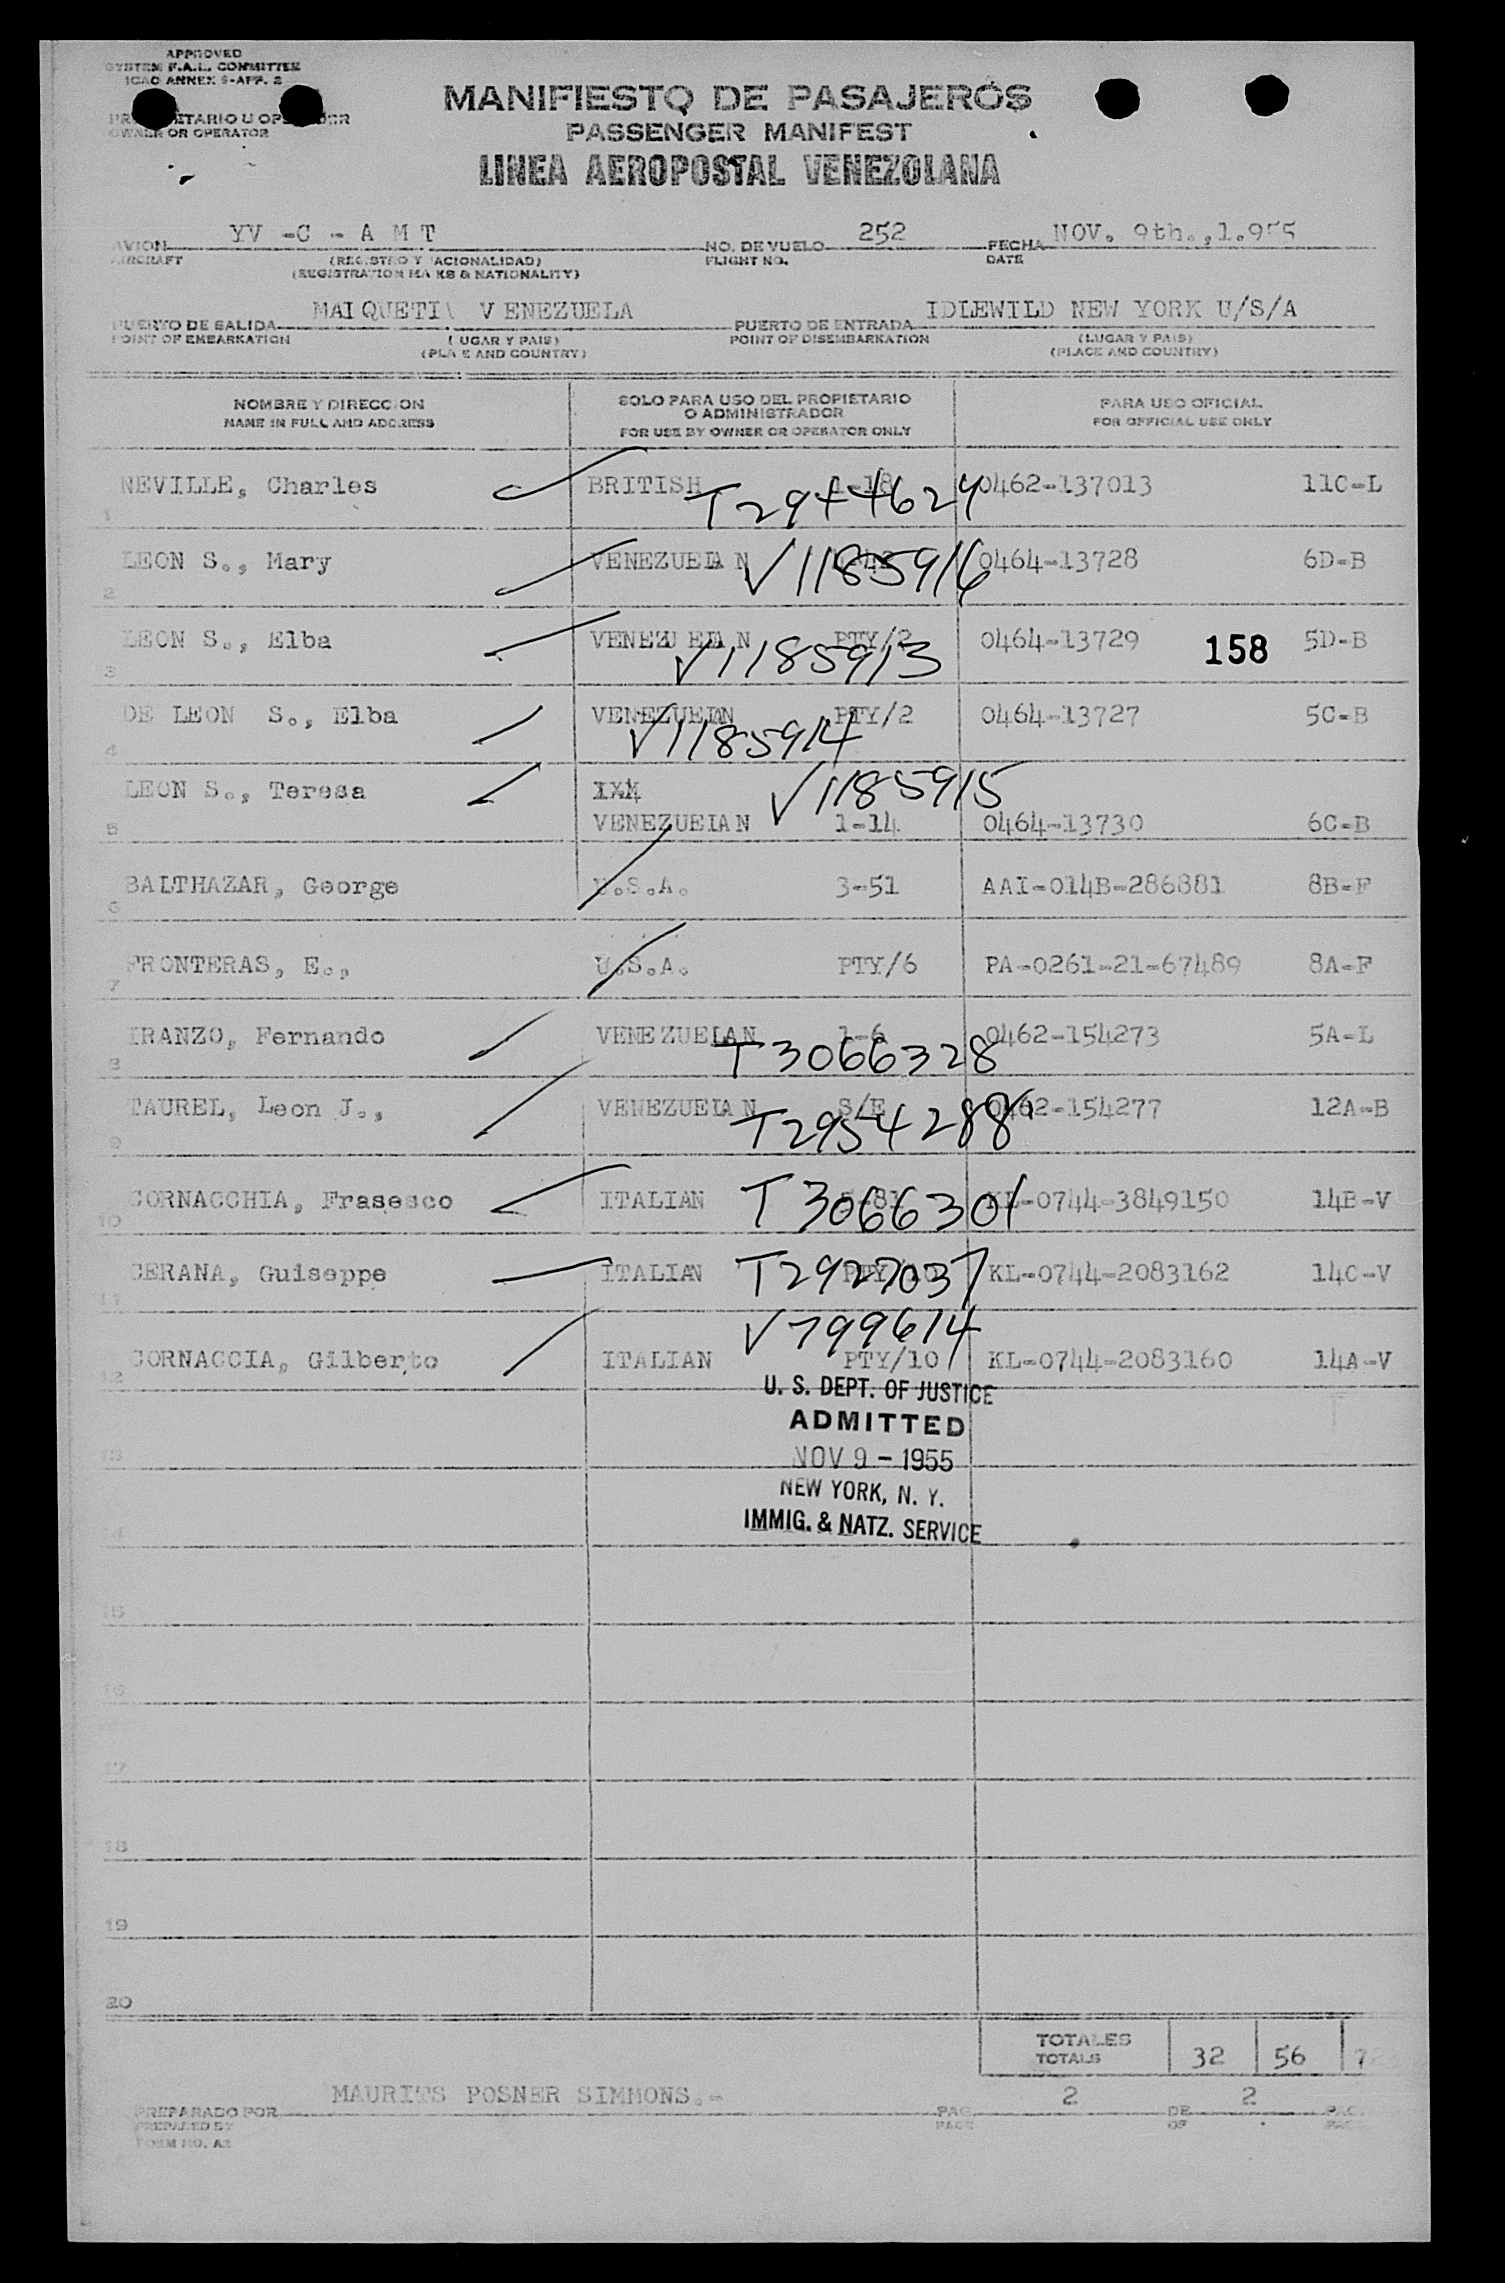 APPROVED
SYSTEM F.A.L. COMMITTEE
ICAO ANNEX 9-APP. 2
OWNER OR OPERATOR
MANIFIESTO DE PASAJEROS
PASSENGER MANIFEST
LINEA AEROPOSTAL VENEZOLANA
AVION YV -C - A M T NO. DE VUELO 252 FECHA NOV. 9th.,1.955
AIRCRAFT (REGISTRO Y NACIONALIDAD) FLIGHT NO. DATE
(REGISTRATION MARKS & NATIONALITY)
PUERTO DE SALIDA MAIQUETIA VENEZUELA PUERTO DE ENTRADA IDLEWILD NEW YORK U/S/A
POINT OF EMBARKATION (LUGAR Y PAIS) POINT OF DISEMBARKATION (LUGAR Y PAIS)
(PLACE AND COUNTRY) (PLACE AND COUNTRY)
NOMBRE Y DIRECCION SOLO PARA USO DEL PROPIETARIO O ADMINISTRADOR PARA USO OFICIAL
NAME IN FULL AND ADDRESS FOR USE BY OWNER OR OPERATOR ONLY FOR OFFICIAL USE ONLY
1 NEVILLE, Charles BRITISH 1-18 0462-137013 11C-L
T2944624
2 LEON S., Mary VENEZUELAN 0464-13728 6D-B
V1185916
3 LEON S., Elba VENEZUELAN PTY/2 0464-13729 158 5D-B
V1185913
4 DE LEON S., Elba VENEZUELAN PTY/2 0464-13727 5C-B
V1185914
LEON S., Teresa V1185915
5 VENEZUELAN 1-14 0464-13730 6C-B
6 BALTHAZAR, George U.S.A. 3-51 AAI-014B-286881 8B-F
7 FRONTERAS, E., U.S.A. PTY/6 PA-0261-21-67489 8A-F
8 IRANZO, Fernando VENEZUELAN 1-6 0462-154273 5A-L
T3066328
9 TAUREL, Leon J., VENEZUELAN S/E 0462-154277 12A-B
T2954288
10 CORNACCHIA, Frasesco ITALIAN T3066301 KL-0744-3849150 14B-V
11 CERANA, Guiseppe ITALIAN T2927037 KL-0744-2083162 14C-V
V799614
12 CORNACCIA, Gilberto ITALIAN PTY/10 KL-0744-2083160 14A-V
U. S. DEPT. OF JUSTICE
ADMITTED
13 NOV 9 - 1955
NEW YORK, N. Y.
14 IMMIG. & NATZ. SERVICE
15
16
17
18
19
20
TOTALES 32 56
TOTALS
PREPARADO POR MAURITS POSNER SIMMONS.- PAG. 2 DE 2 PAG.
PREPARED BY PAGE OF
FORM NO. A2